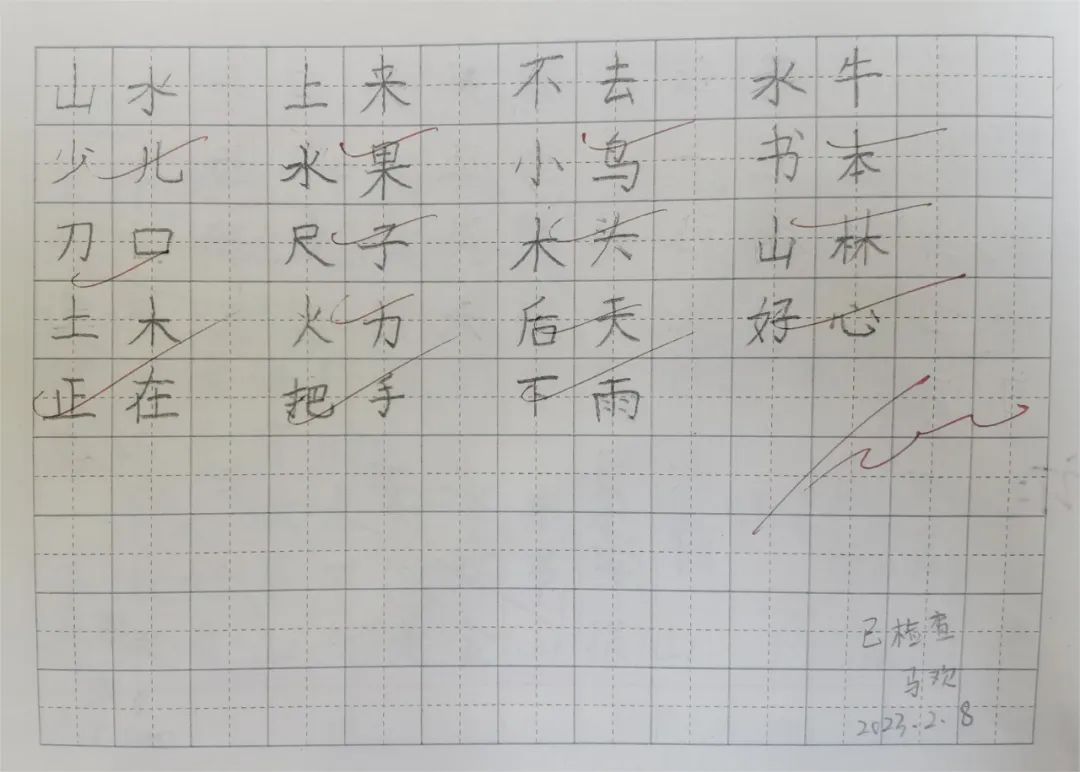 山水 上来 不去 水牛
少儿 水果 小鸟 书本
刀口 尺子 木头 山林
土木 火力 后天 好心
正在 把手 下雨
已检查
马欢
2023.2.8